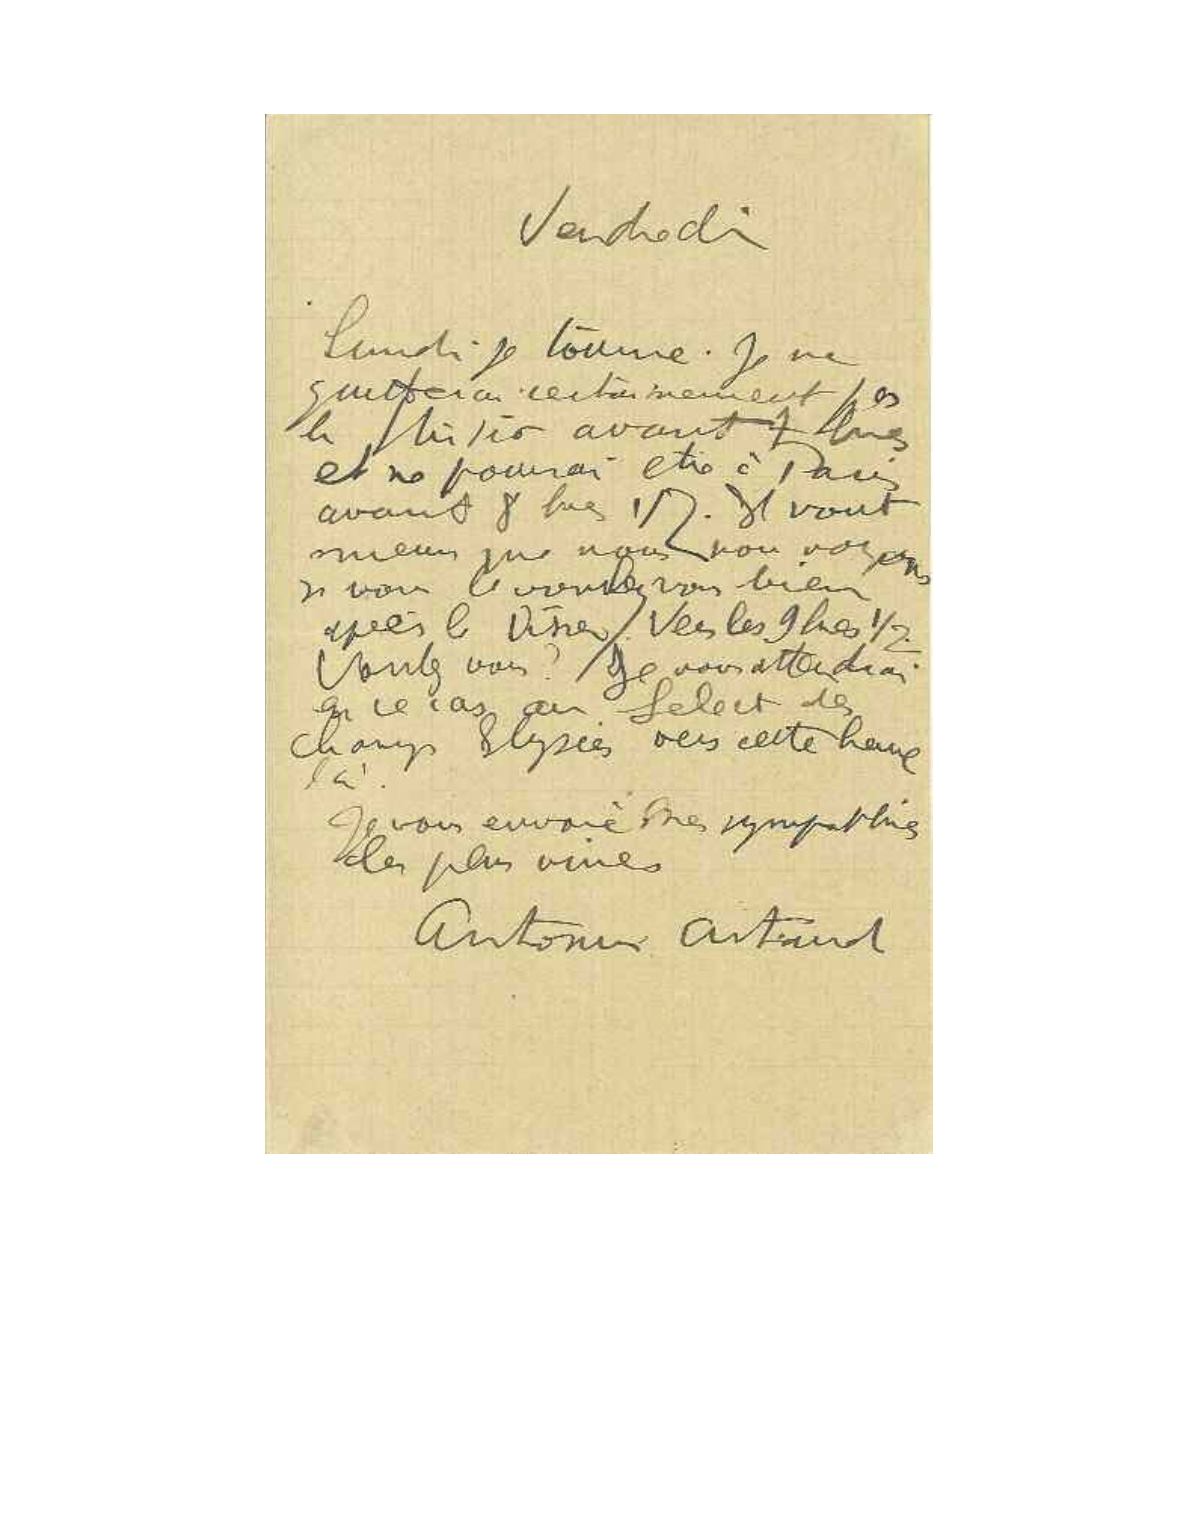 Vendredi
Lundi je tourne. Je ne
quitterai certainement pas
le studio avant 7 hres
et ne pourrai etre à Paris
avant 8 hres 1/2. Il vaut
mieux que nous nous voyions
si vous le voulez bien
après le Dîner. Vers les 9 hres 1/2.
Voulez vous? Je vous attendrai
en ce cas au Select des
Champs Elysées vers cette heure
là.
Je vous envoie mes sympathies
les plus vives
Antonin Artaud